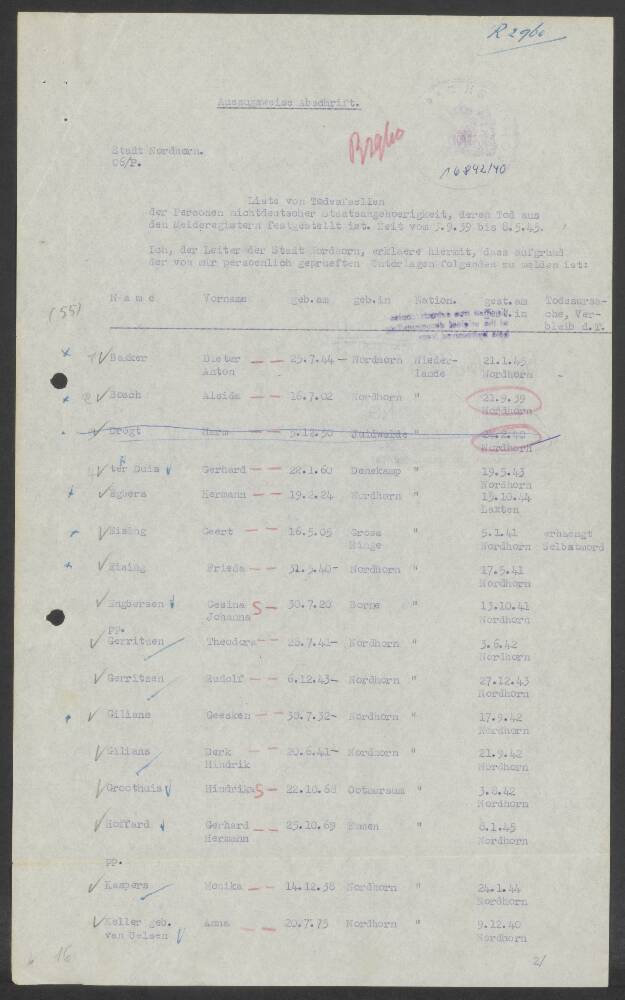 R 2960
Auszugsweise Abschrift.
Stadt Nordhorn.
C6/P.
16842/40
Liste von Todesfaellen
der Personen nichtdeutscher Staatsangehoerigkeit, deren Tod aus
den Melderegistern festgestellt ist. Zeit vom 3.9.39 bis 8.5.45.
Ich, der Leiter der Stadt Nordhorn, erklaere hiermit, dass aufgrund
der von mir persoenlich geprueften Unterlagen folgendes zu melden ist:
N a m e Vorname geb.am geb.in Nation. gest.am Todesursa-
(55) in che, Ver-
bleib d.T.
Backer Dieter 25.7.44 Nordhorn Nieder- 21.1.45
Anton lande Nordhorn
Bosch Aleida 16.7.02 Nordhorn " 21.9.39
Nordhorn
Drogt Harm "
Nordhorn
ter Duis Gerhard 22.1.60 Denekamp " 19.5.43
Nordhorn
Egbers Hermann 19.2.24 Nordhorn " 15.10.44
Laxten
Eising Geert 16.5.05 Gross " 5.1.41 erhaengt
Ringe Nordhorn Selbstmord
Eising Frieda 31.5.40 Nordhorn " 17.5.41
Nordhorn
Engbersen Gesina S 30.7.20 Borne " 13.10.41
Johanna Nordhorn
pp.
Gerritzen Theodora 28.7.41 Nordhorn " 3.6.42
Nordhorn
Gerritzen Rudolf 6.12.43 Nordhorn " 27.12.43
Nordhorn
Gilians Geesken 30.7.32 Nordhorn " 17.9.42
Nordhorn
Gilians Derk 20.6.41 Nordhorn " 21.9.42
Hindrik Nordhorn
Groothuis Hindrika S 22.10.68 Ootmarsum " 3.8.42
Nordhorn
Hoffard Gerhard 25.10.69 Emmen " 8.1.45
Hermann Nordhorn
pp.
Kaspers Monika 14.12.38 Nordhorn " 24.1.44
Nordhorn
Keller geb. Anna 20.7.75 Nordhorn " 9.12.40
van Oelsen Nordhorn
16 2/